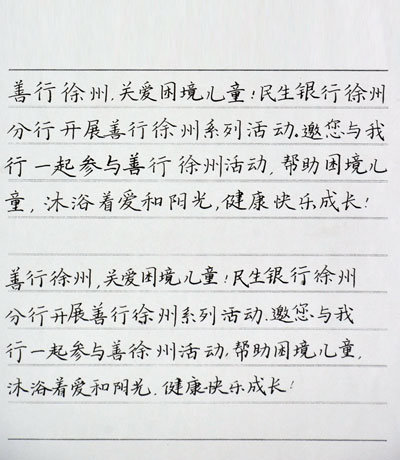 善行徐州,关爱困境儿童!民生银行徐州
分行开展善行徐州系列活动.邀您与我
行一起参与善行徐州活动,帮助困境儿
童,沐浴着爱和阳光,健康快乐成长!
善行徐州,关爱困境儿童!民生银行徐州
分行开展善行徐州系列活动.邀您与我
行一起参与善徐州活动,帮助困境儿童,
沐浴着爱和阳光.健康快乐成长!